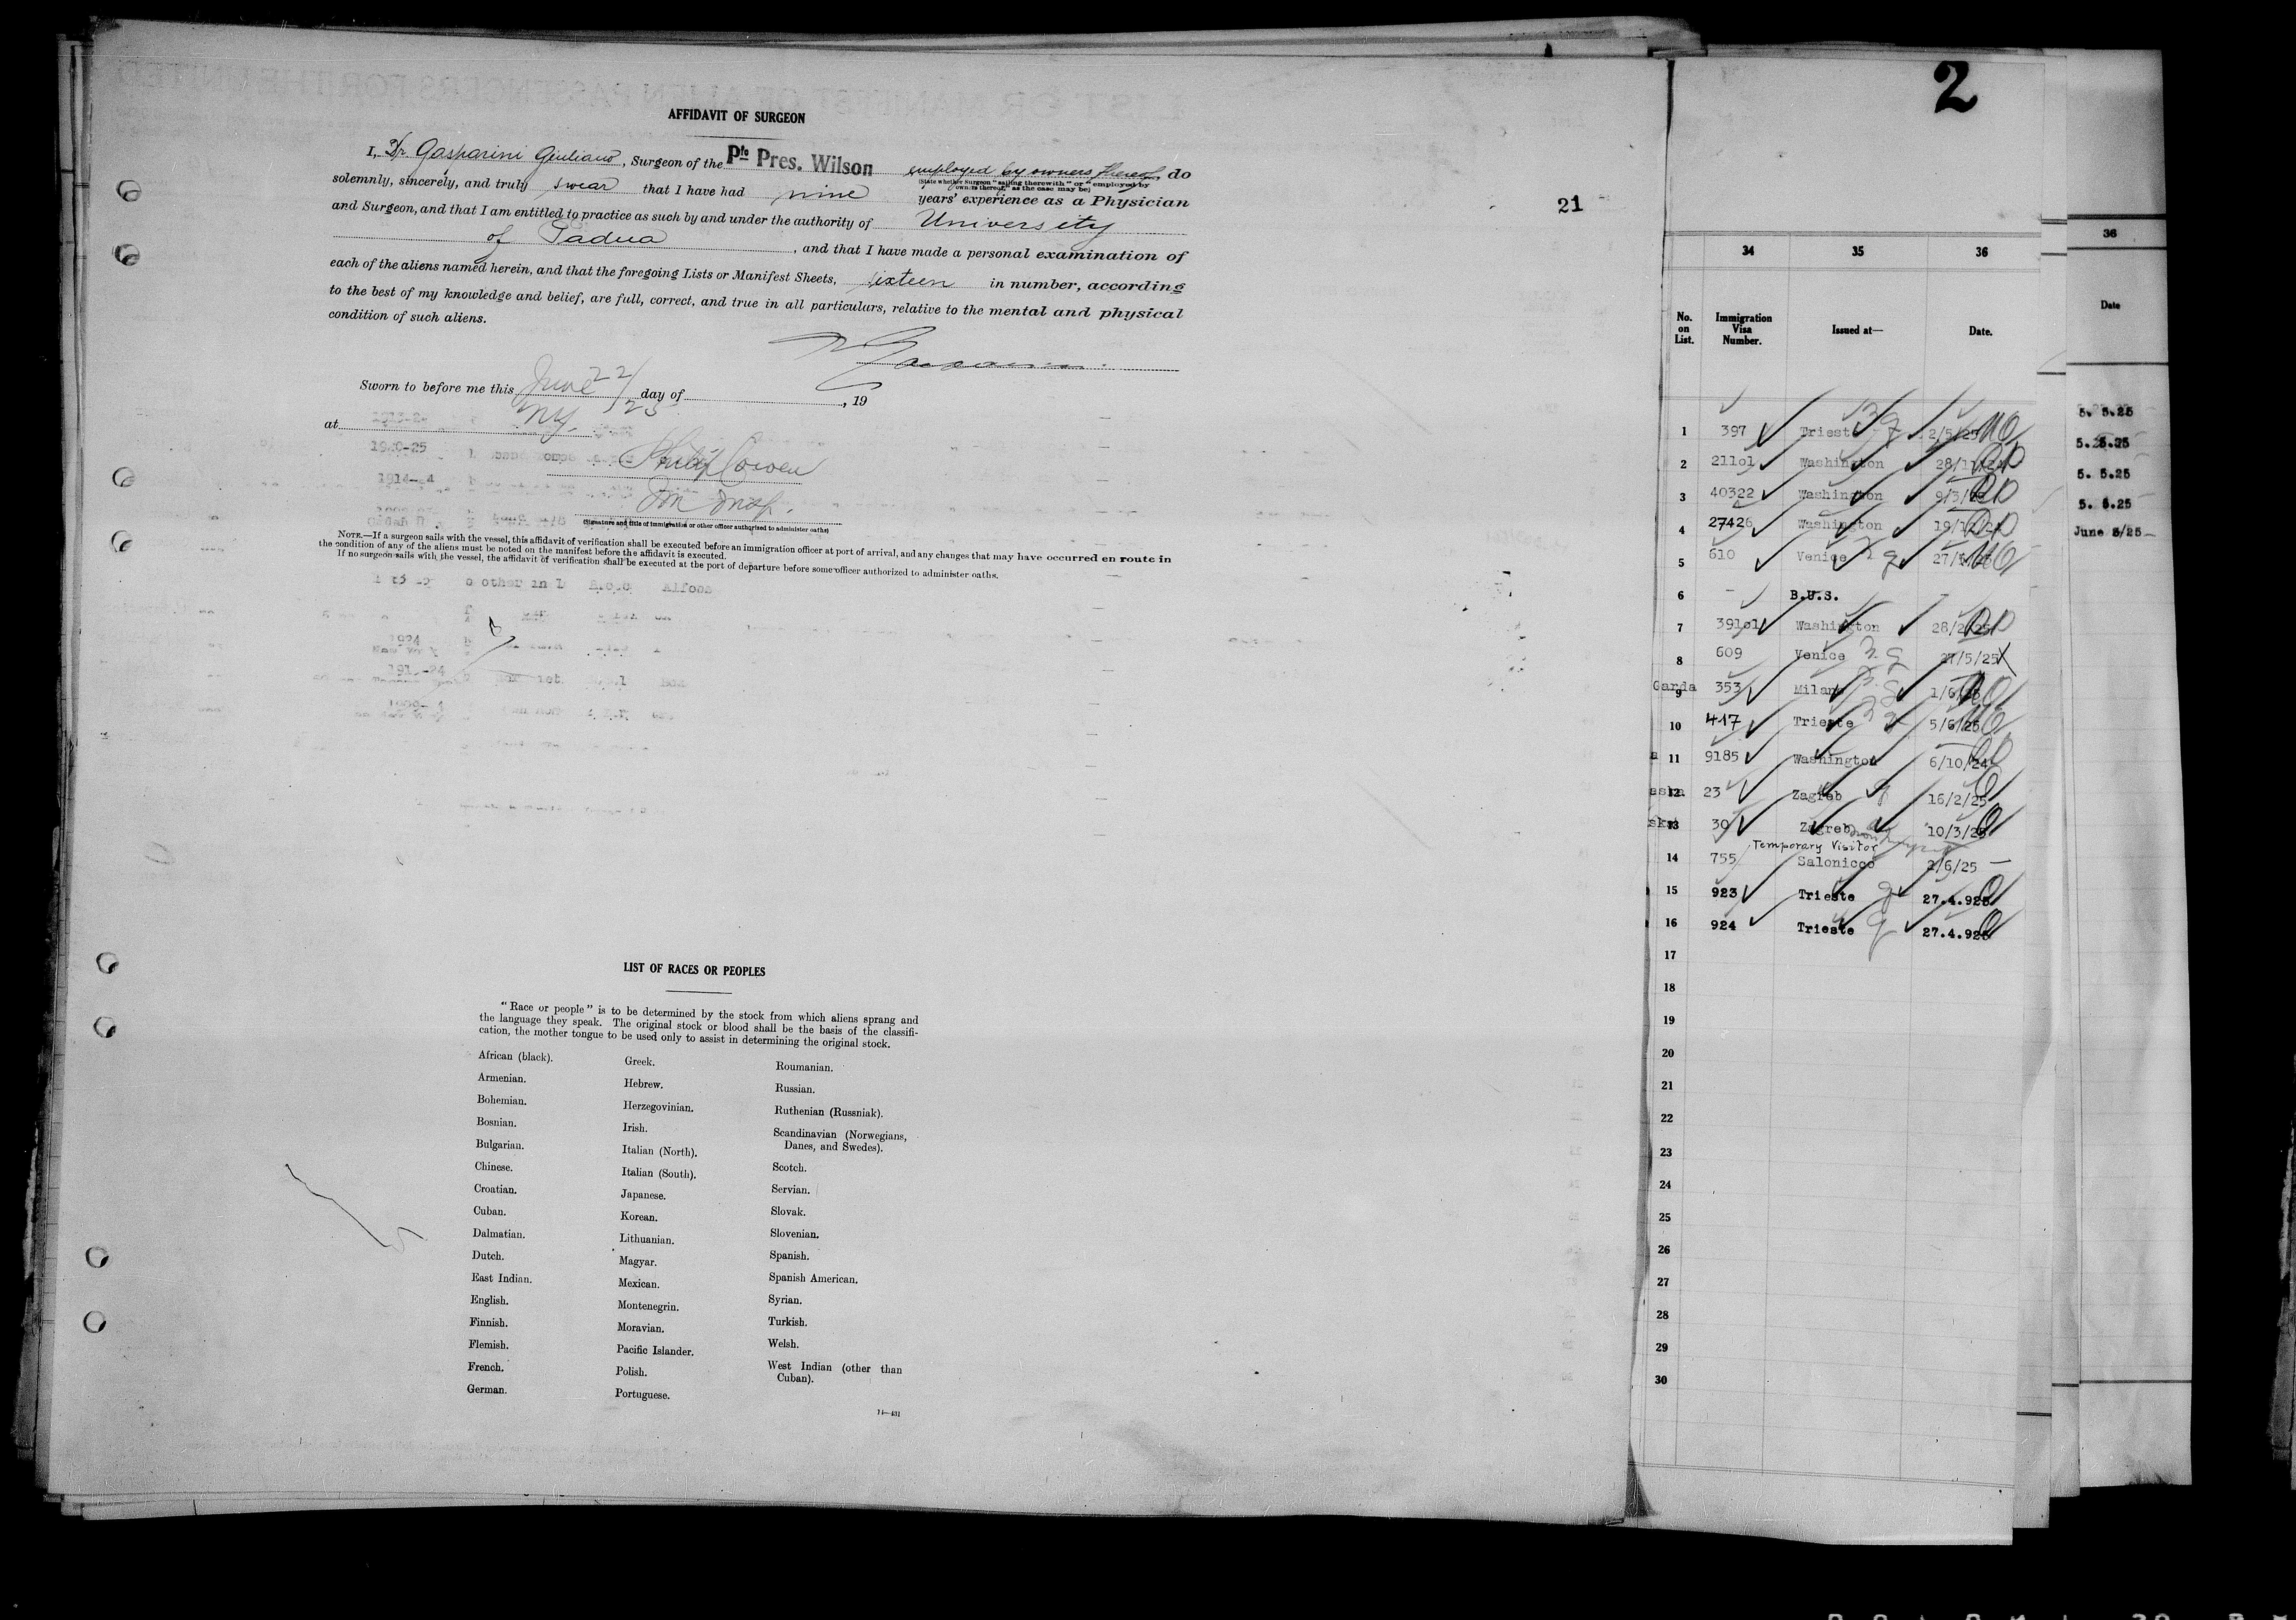 2
AFFIDAVIT OF SURGEON
I, Dr. Gasparini Giuliano, Surgeon of the Pte Pres. Wilson employed by owners thereof do
(State whether Surgeon "sailing therewith" or "employed by owners thereof," as the case may be)
solemnly, sincerely, and truly swear that I have had nine years' experience as a Physician
and Surgeon, and that I am entitled to practice as such by and under the authority of University
of Padua, and that I have made a personal examination of
each of the aliens named herein, and that the foregoing Lists or Manifest Sheets, sixteen in number, according
to the best of my knowledge and belief, are full, correct, and true in all particulars, relative to the mental and physical
condition of such aliens.
Sworn to before me this June 22/25 day of , 19
at N.Y.
Philip Cowen
Im Insp.
(Signature and title of immigration or other officer authorized to administer oaths)
NOTE.—If a surgeon sails with the vessel, this affidavit of verification shall be executed before an immigration officer at port of arrival, and any changes that may have occurred en route in
the condition of any of the aliens must be noted on the manifest before the affidavit is executed.
If no surgeon sails with the vessel, the affidavit of verification shall be executed at the port of departure before some officer authorized to administer oaths.
LIST OF RACES OR PEOPLES
"Race or people" is to be determined by the stock from which aliens sprang and
the language they speak. The original stock or blood shall be the basis of the classifi-
cation, the mother tongue to be used only to assist in determining the original stock.
African (black).
Armenian.
Bohemian.
Bosnian.
Bulgarian.
Chinese.
Croatian.
Cuban.
Dalmatian.
Dutch.
East Indian.
English.
Finnish.
Flemish.
French.
German.
Greek.
Hebrew.
Herzegovinian.
Irish.
Italian (North).
Italian (South).
Japanese.
Korean.
Lithuanian.
Magyar.
Mexican.
Montenegrin.
Moravian.
Pacific Islander.
Polish.
Portuguese.
Roumanian.
Russian.
Ruthenian (Russniak).
Scandinavian (Norwegians,
Danes, and Swedes).
Scotch.
Servian.
Slovak.
Slovenian.
Spanish.
Spanish American.
Syrian.
Turkish.
Welsh.
West Indian (other than
Cuban).
14—431
21
34 35 36
No. on List. Immigration Visa Number. Issued at— Date.
1 397 Trieste 2/5/25
2 21101 Washington
3 40322 Washington
4 27426 Washington
5 610 Venice
6 - B.U.S.
7 39101 Washington 28/2/25
8 609 Venice 27/5/25
Garda 9 353 Milan
10 417 Trieste 5/6/25
a 11 9185 Washington 6/10/24
12 23 Zagreb 16/2/25
13 30 Zagreb 10/3/25
Temporary Visitor
14 755 Salonicco 2/6/25 —
15 923 Trieste 27.4.925
16 924 Trieste 27.4.925
17
18
19
20
21
22
23
24
25
26
27
28
29
30
36
Date
5. 5.25
5. 5.25
5. 5.25
5. 5.25
June 5/25